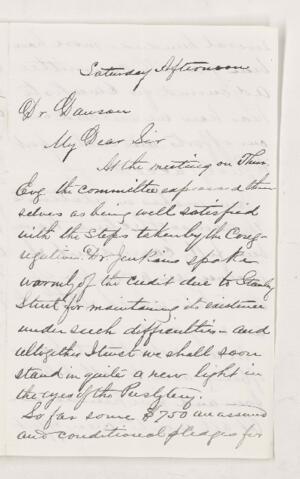 Saturday Afternoon
Dr Dawson
My Dear Sir
At the meeting on Thurs
Evg the committee expressed them
selves as being well satisfied
with the steps taken by the Cong-
regation. Dr Jenkins spoke
warmly of the credit due to Stanley
Street for maintaining its existence
under such difficulties - and
altogether I trust we shall soon
stand in quite a new light in
the eyes of the Presbytery.
So far some $750 are assured
and conditional pledges for